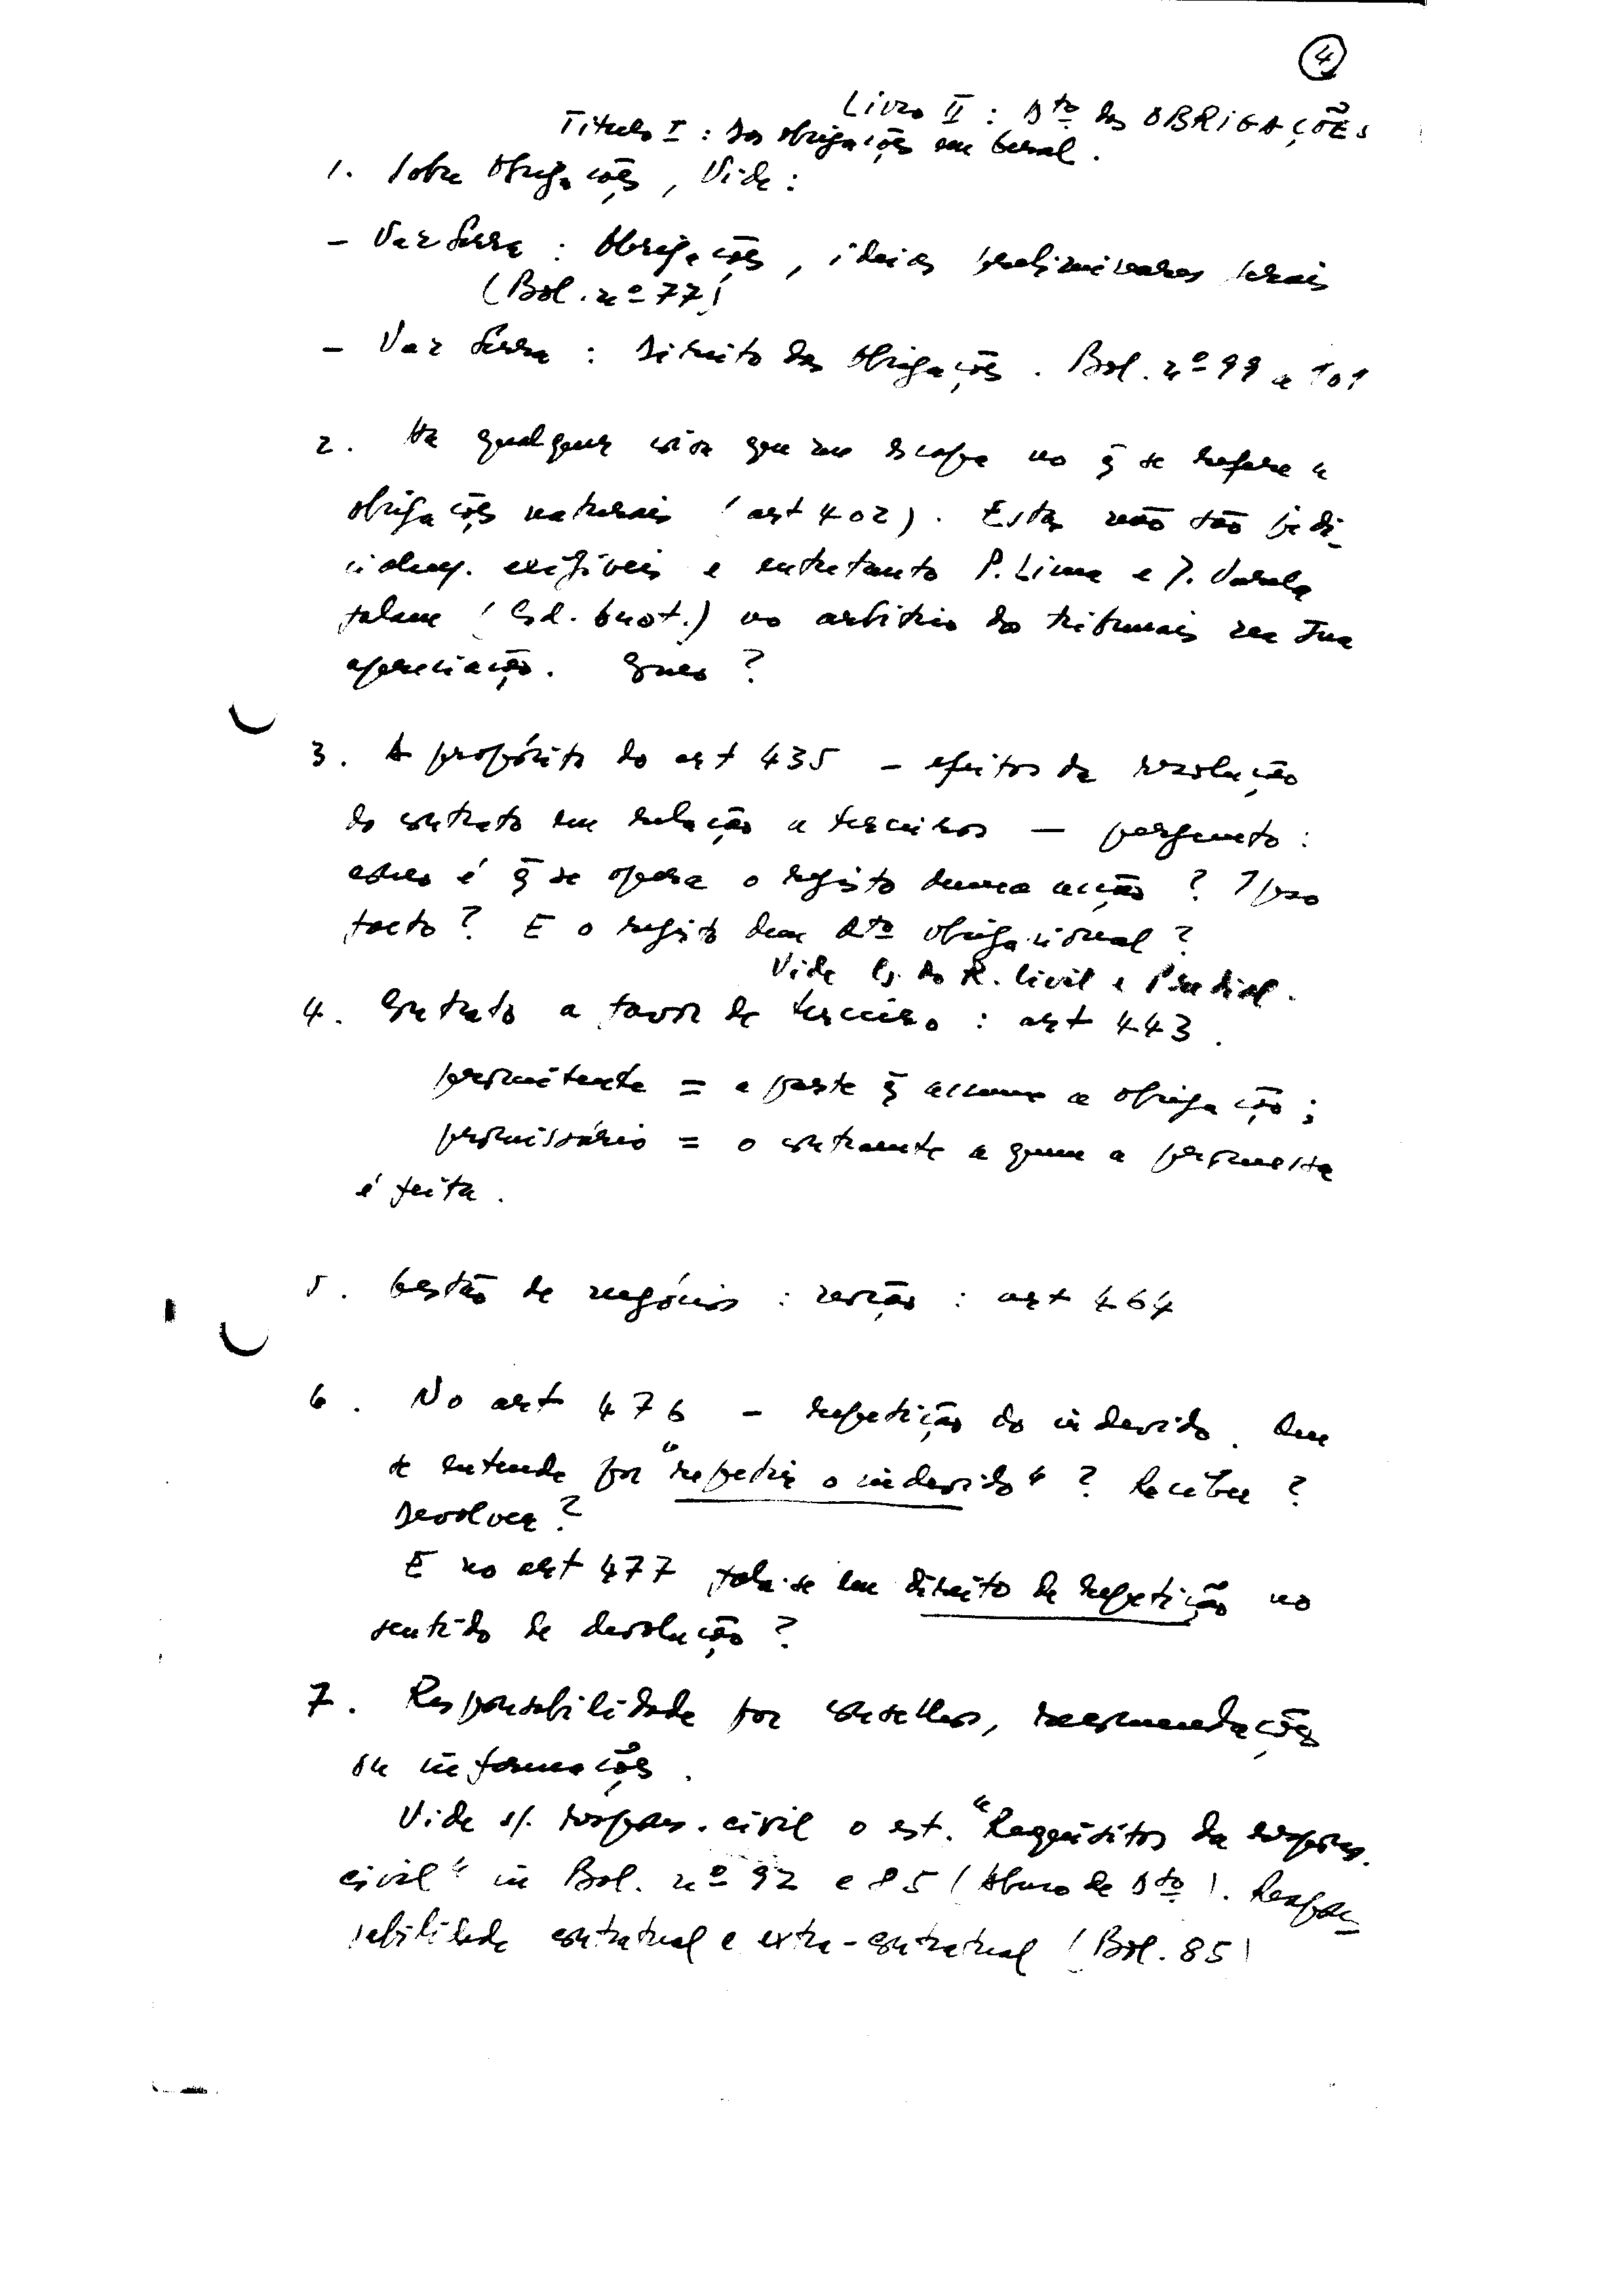 4
Livro II : Dto das OBRIGAÇÕES
Titulo I : Das obrigações em Geral.
1. Sobre Obrigações, Vide :
- Vaz Serra : Obrigações, ideias preliminares gerais
(Bol. nº 77)
- Vaz Serra : Direito das Obrigações. Bol. nº 99 a 101
2. Há qualquer coisa que me escapa no q̃ se refere a
obrigações naturais (art 402). Estas não são judi-
cialmy. exigíveis e entretanto P. Lima e A. Varela
falam (Cód. Anot.) no arbítrio dos tribunais na sua
apreciação. Como ?
3. A propósito do art 435 - efeitos da resolução
do contrato em relação a terceiros - pergunto :
como é q̃ se opera o registo duma acção ? Ipso
facto ? E o registo dum Dto obrigacional ?
Vide C. do R. Civil e Predial.
4. Contrato a favor de terceiro : art 443.
promitente = a parte q̃ assume a obrigação ;
promissário = o contraente a quem a promessa
é feita.
5. Gestão de negócios : noção : art 464
6. No art 476 - repetição do indevido. Que
se entende por "repetir o indevido" ? Receber ?
Devolver ?
E no art 477 fala-se em direito de repetição no
sentido de devolução ?
7. Responsabilidade por conselhos, recomendações
ou informações.
Vide s/. respons. civil o est. "Requisitos da respons.
civil" in Bol. nº 92 e 85 (Abuso de Dto). Respon-
sabilidade contratual e extra-contratual (Bol. 85)